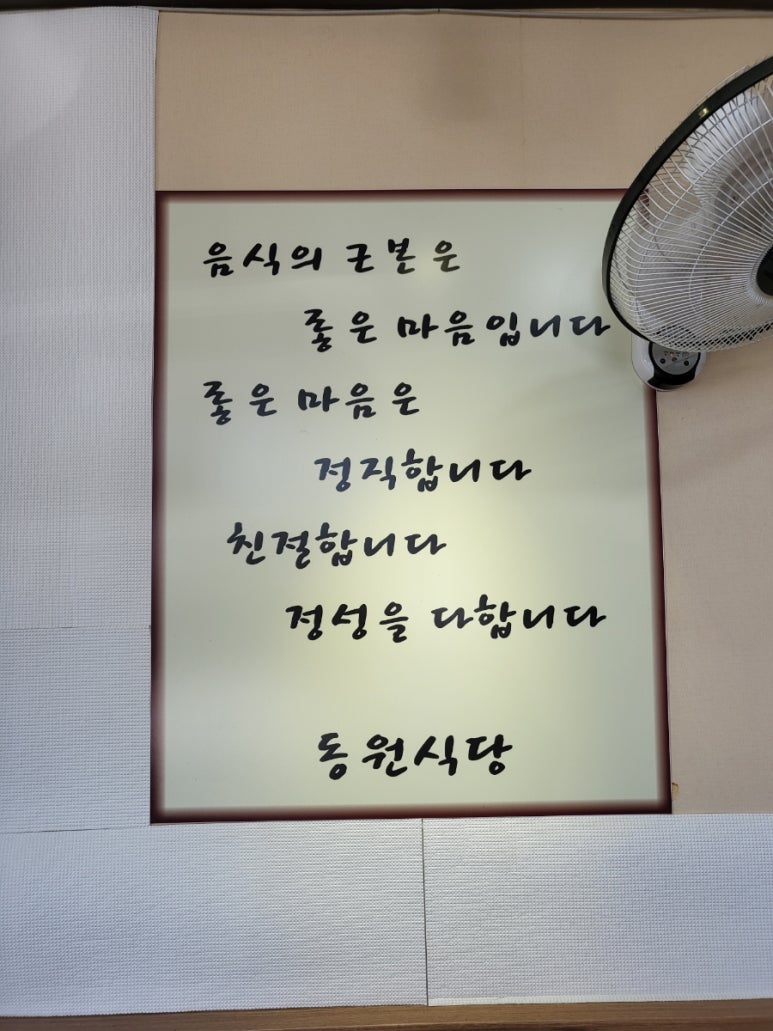 음식의 근본은
좋은 마음입니다
좋은 마음은
정직합니다
친절합니다
정성을 다합니다
동원식당